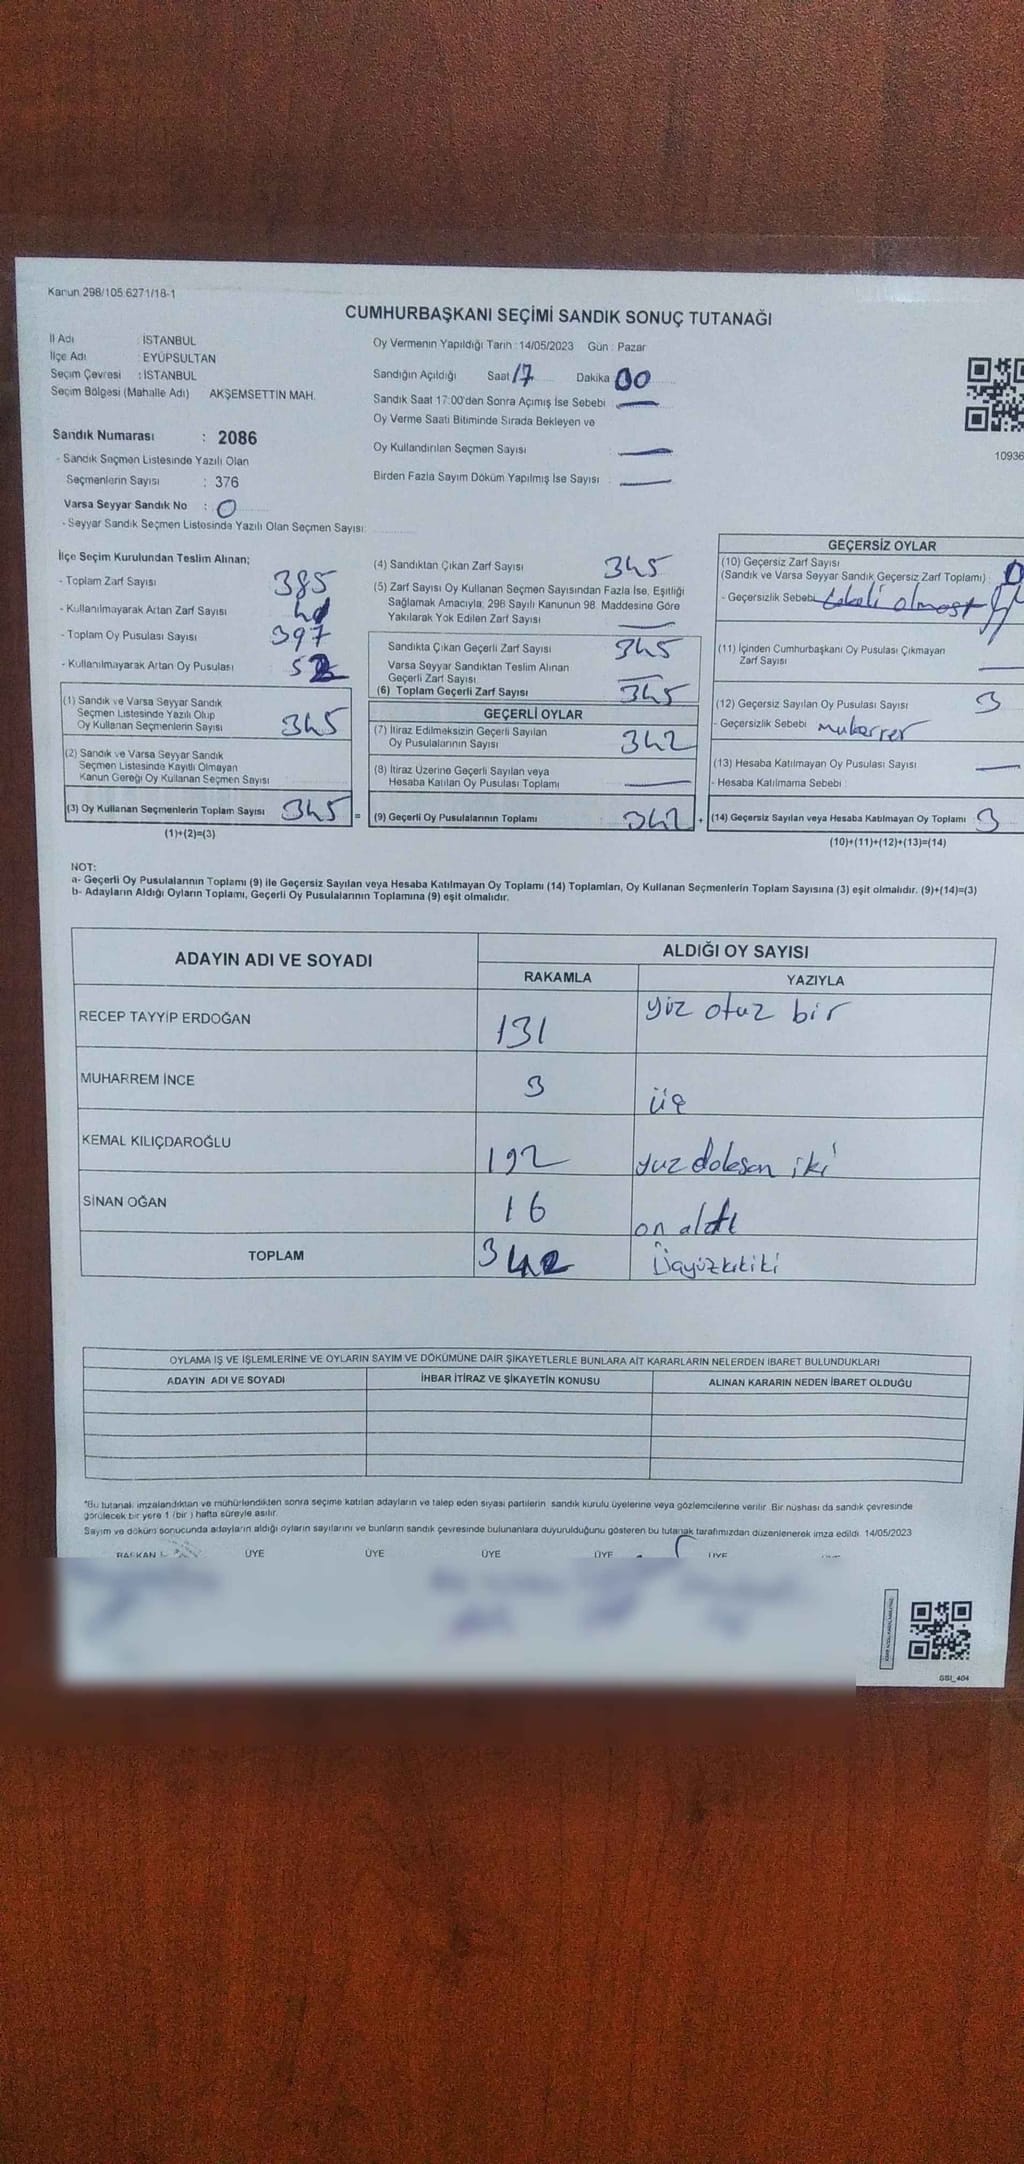 Kanun 298/105 6271/18-1
CUMHURBAŞKANI SEÇİMİ SANDIK SONUÇ TUTANAĞI
İl Adı : İSTANBUL
İlçe Adı : EYÜPSULTAN
Seçim Çevresi : İSTANBUL
Seçim Bölgesi (Mahalle Adı) AKŞEMSETTİN MAH.
Sandık Numarası : 2086
- Sandık Seçmen Listesinde Yazılı Olan
Seçmenlerin Sayısı : 376
Varsa Seyyar Sandık No : 0
- Seyyar Sandık Seçmen Listesinde Yazılı Olan Seçmen Sayısı:
Oy Vermenin Yapıldığı Tarih : 14/05/2023 Gün : Pazar
Sandığın Açıldığı Saat 17 Dakika 00
Sandık Saat 17:00'den Sonra Açımış İse Sebebi : —
Oy Verme Saati Bitiminde Sırada Bekleyen ve
Oy Kullandırılan Seçmen Sayısı : —
Birden Fazla Sayım Döküm Yapılmış İse Sayısı : —
10936
İlçe Seçim Kurulundan Teslim Alınan;
- Toplam Zarf Sayısı 385
- Kullanılmayarak Artan Zarf Sayısı
- Toplam Oy Pusulası Sayısı 397
- Kullanılmayarak Artan Oy Pusulası
(1) Sandık ve Varsa Seyyar Sandık
Seçmen Listesinde Yazılı Olup
Oy Kullanan Seçmenlerin Sayısı 345
(2) Sandık ve Varsa Seyyar Sandık
Seçmen Listesinde Kayıtlı Olmayan
Kanun Gereği Oy Kullanan Seçmen Sayısı
(3) Oy Kullanan Seçmenlerin Toplam Sayısı 345 =
(1)+(2)=(3)
(4) Sandıktan Çıkan Zarf Sayısı 345
(5) Zarf Sayısı Oy Kullanan Seçmen Sayısından Fazla İse, Eşitliği
Sağlamak Amacıyla; 298 Sayılı Kanunun 98. Maddesine Göre
Yakılarak Yok Edilen Zarf Sayısı —
Sandıkta Çıkan Geçerli Zarf Sayısı 345
Varsa Seyyar Sandıktan Teslim Alınan
Geçerli Zarf Sayısı —
(6) Toplam Geçerli Zarf Sayısı 345
GEÇERLİ OYLAR
(7) İtiraz Edilmeksizin Geçerli Sayılan
Oy Pusulalarının Sayısı 342
(8) İtiraz Üzerine Geçerli Sayılan veya
Hesaba Katılan Oy Pusulası Toplamı —
(9) Geçerli Oy Pusulalarının Toplamı 342 +
GEÇERSİZ OYLAR
(10) Geçersiz Zarf Sayısı
(Sandık ve Varsa Seyyar Sandık Geçersiz Zarf Toplamı) : 0
- Geçersizlik Sebebi
(11) İçinden Cumhurbaşkanı Oy Pusulası Çıkmayan
Zarf Sayısı —
(12) Geçersiz Sayılan Oy Pusulası Sayısı 3
- Geçersizlik Sebebi mukerrer
(13) Hesaba Katılmayan Oy Pusulası Sayısı —
- Hesaba Katılmama Sebebi
(14) Geçersiz Sayılan veya Hesaba Katılmayan Oy Toplamı 3
(10)+(11)+(12)+(13)=(14)
NOT:
a- Geçerli Oy Pusulalarının Toplamı (9) ile Geçersiz Sayılan veya Hesaba Katılmayan Oy Toplamı (14) Toplamları, Oy Kullanan Seçmenlerin Toplam Sayısına (3) eşit olmalıdır. (9)+(14)=(3)
b- Adayların Aldığı Oyların Toplamı, Geçerli Oy Pusulalarının Toplamına (9) eşit olmalıdır.
ADAYIN ADI VE SOYADI ALDIĞI OY SAYISI
RAKAMLA YAZIYLA
RECEP TAYYİP ERDOĞAN 131 yüz otuz bir
MUHARREM İNCE 3 üç
KEMAL KILIÇDAROĞLU 192 yuz doksan iki
SİNAN OĞAN 16 on altı
TOPLAM 342 Üçyüzkıtiki
OYLAMA İŞ VE İŞLEMLERİNE VE OYLARIN SAYIM VE DÖKÜMÜNE DAİR ŞİKAYETLERLE BUNLARA AİT KARARLARIN NELERDEN İBARET BULUNDUKLARI
ADAYIN ADI VE SOYADI İHBAR İTİRAZ VE ŞİKAYETİN KONUSU ALINAN KARARIN NEDEN İBARET OLDUĞU
*Bu tutanak imzalandıktan ve mühürlendikten sonra seçime katılan adayların ve talep eden siyasi partilerin sandık kurulu üyelerine veya gözlemcilerine verilir. Bir nüshası da sandık çevresinde
görülecek bir yere 1 (bir ) hafta süreyle asılır.
Sayım ve döküm sonucunda adayların aldığı oyların sayılarını ve bunların sandık çevresinde bulunanlara duyurulduğunu gösteren bu tutanak tarafımızdan düzenlenerek imza edildi. 14/05/2023
BAŞKAN ÜYE ÜYE ÜYE ÜYE ÜYE
SSI_404